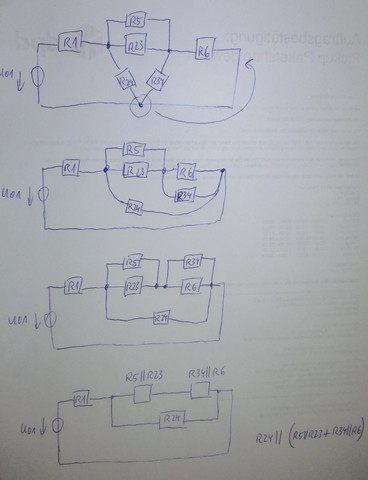 R5
R1 R23 R6
R24 R34
U01
R5
R1 R23 R6
R34
R24
U01
R5 R34
R1 R23 R6
R24
U01
R5||R23 R34||R6
R1
R24
U01
R24 || (R5||R23 + R34||R6)